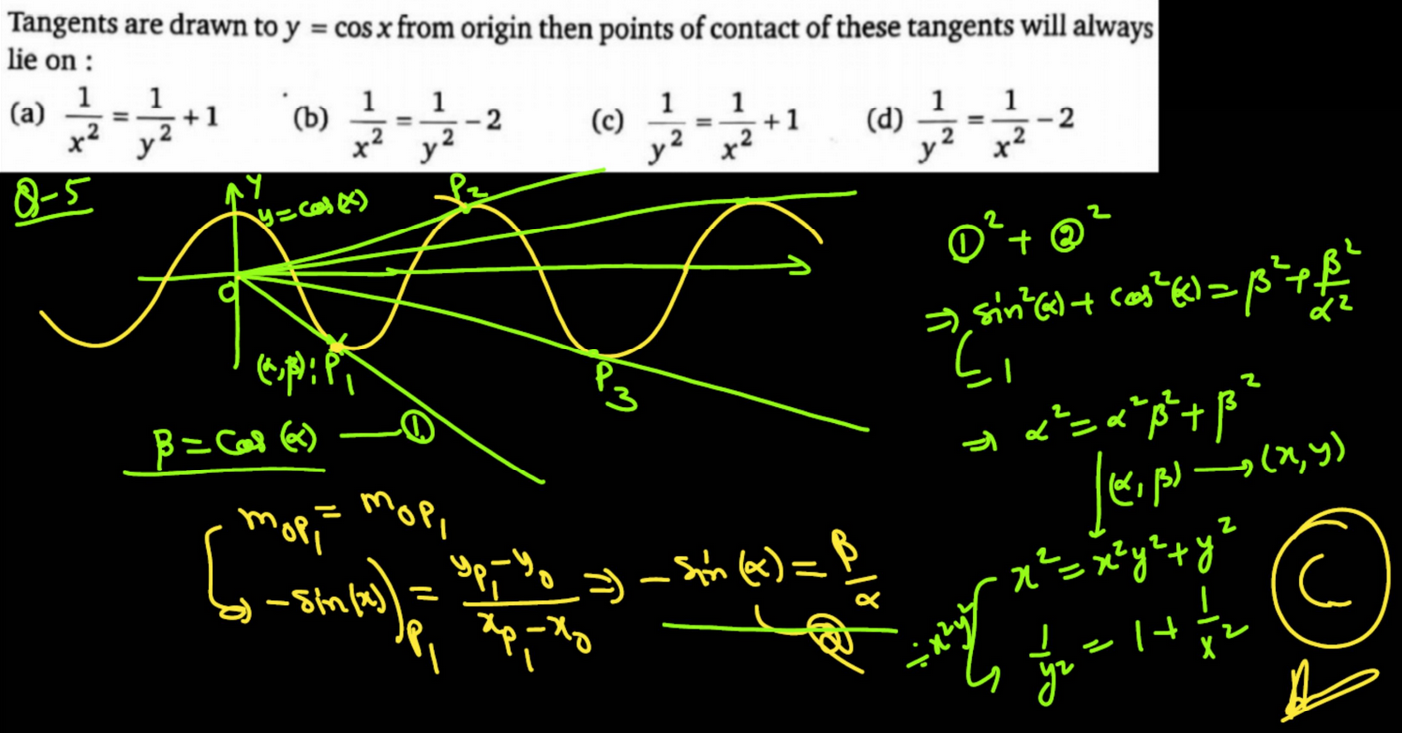 Tangents are drawn to y = cos x from origin then points of contact of these tangents will always
lie on :
(a) 1/x² = 1/y² + 1 (b) 1/x² = 1/y² - 2 (c) 1/y² = 1/x² + 1 (d) 1/y² = 1/x² - 2
Q-5
Y
y=cos(x)
P₂
O
(α,β):P₁
P₃
β = Cos(α) — ①
m_OP₁ = m_OP₁
-sin(x))_P₁ = (y_P₁ - y_0)/(x_P₁ - x_0) ⇒ -sin(α) = β/α
②
①² + ②²
⇒ sin²(α) + cos²(α) = β² + β²/α²
= 1
⇒ α² = α²β² + β²
(α,β) → (x,y)
x² = x²y² + y²
÷x²y²
1/y² = 1 + 1/x²
C